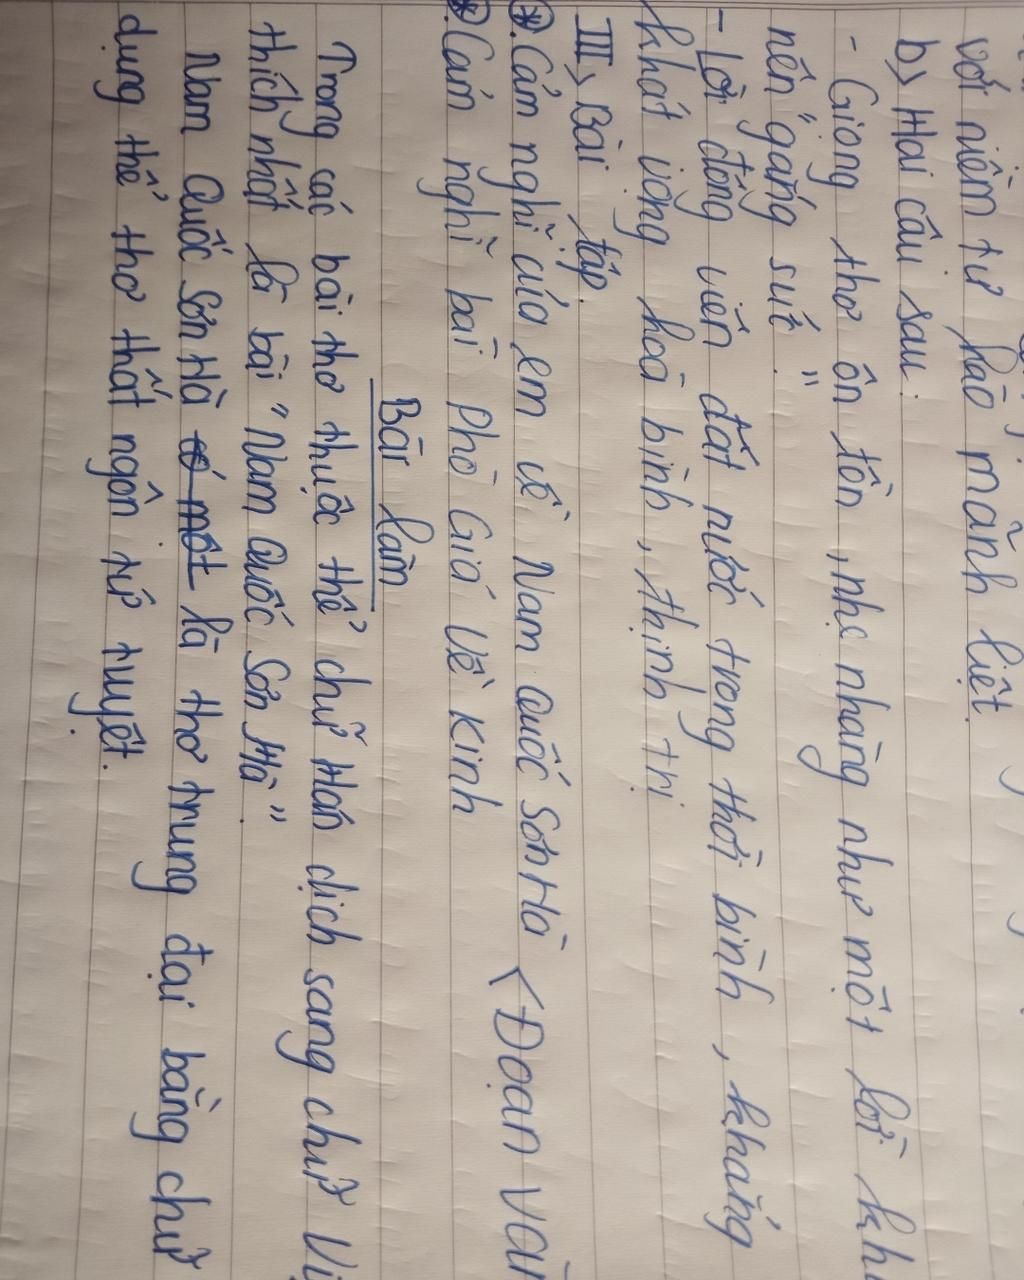 với niềm tự hào mãnh liệt
b) Hai câu sau:
- Giọng thơ ôn tồn, nhẹ nhàng như một lời
nên "gắng sức"
- Lời động viên đất nước trong thời bình, kháng
khát vọng hoà bình, thịnh trị
III) Bài tập.
*. Cảm nghĩ của em về Nam Quốc Sơn Hà <Đoạn
*. Cảm nghĩ bài Phò Giá Về Kinh
Bài làm
Trong các bài thơ thuộc thể chữ Hán dịch sang chữ
thích nhất là bài "Nam Quốc Sơn Hà".
Nam Quốc Sơn Hà có một là thơ trung đại bằng chữ
dụng thể thơ thất ngôn tứ tuyệt.